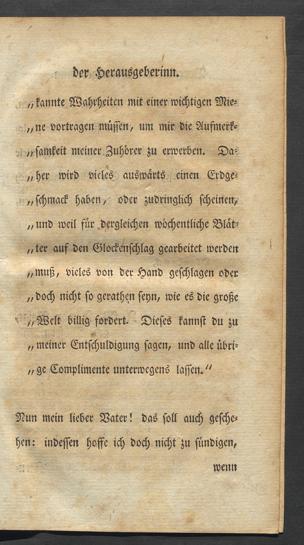 der Herausgeberinn.
„kannte Wahrheiten mit einer wichtigen Mie-
„ne vortragen müssen, um mir die Aufmerk-
„samkeit meiner Zuhörer zu erwerben. Da-
„her wird vieles auswärts einen Erdge-
„schmack haben, oder zudringlich scheinen,
„und weil für dergleichen wöchentliche Blät-
„ter auf den Glockenschlag gearbeitet werden
„muß, vieles von der Hand geschlagen oder
„doch nicht so gerathen seyn, wie es die große
„Welt billig fordert. Dieses kannst du zu
„meiner Entschuldigung sagen, und alle übri-
„ge Complimente unterwegens lassen.“
Nun mein lieber Vater! das soll auch gesche-
hen: indessen hoffe ich doch nicht zu sündigen,
wenn